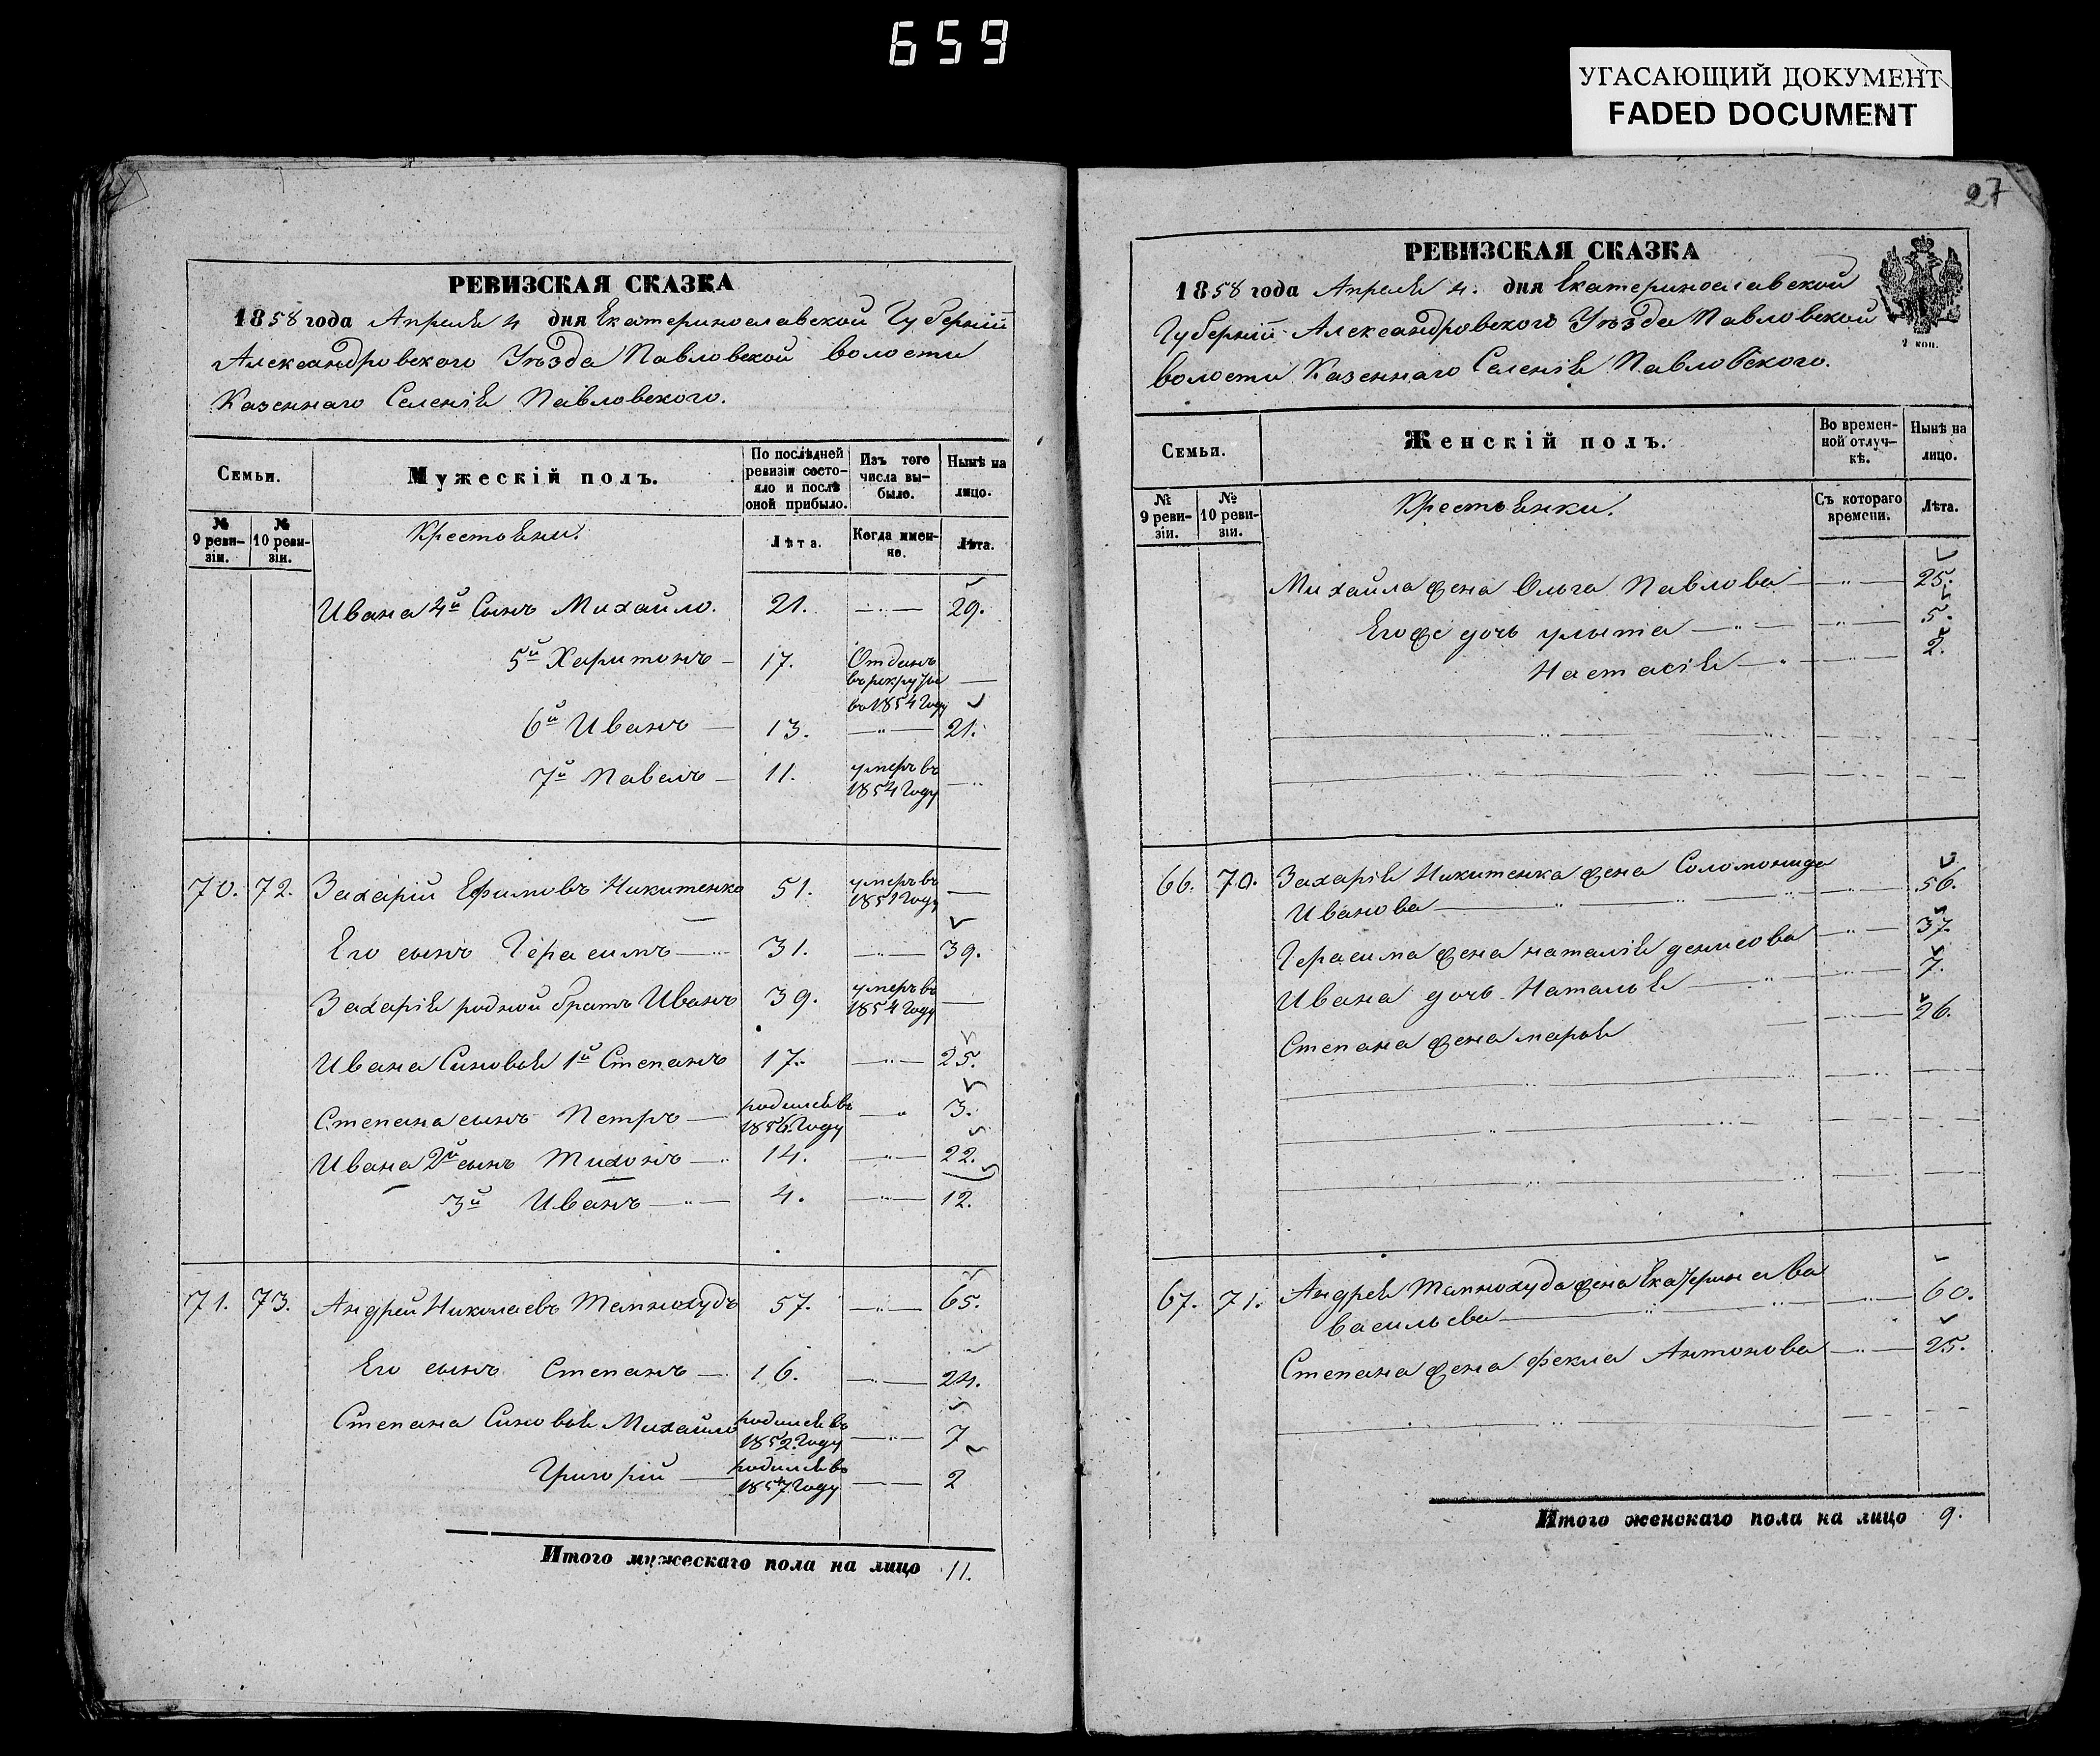 659
УГАСАЮЩИЙ ДОКУМЕНТ
FADED DOCUMENT
РЕВИЗСКАЯ СКАЗКА
1858 года Апреля 4 дня Екатеринославской Губерніи
Александровскаго Уѣзда Павловской волости
Казеннаго Селенія Павловскаго.
Семьи.
Мужескій полъ.
По послѣдней ревизіи состояло и послѣ оной прибыло.
Изъ того числа выбыло.
Нынѣ на лицо.
№ 9 ревизіи.
№ 10 ревизіи.
Крестьяни.
Лѣта.
Когда именно.
Лѣта.
Ивана 4й Сынъ Михайло. 21. 29.
5й Харитонъ 17. Отданъ
въ рекруты
въ 1854 Году
6й Иванъ 13. 21.
7й Павелъ 11. умеръ въ
1854 Году
70. 72. Захарій Ефимовъ Никитенко 51. умеръ въ
1851 Году
Его сынъ Герасимъ 31. 39.
Захарія родной братъ Иванъ 39. умеръ въ
1854 Году
Ивана Синовья 1й Степанъ 17. 25.
Степана сынъ Петръ родился въ 3.
1856 Году
Ивана 2й сынъ Тихонъ 14. 22.
3й Иванъ 4. 12.
71. 73. Андрей Николаевъ 57. 65.
Его сынъ Степанъ 16. 24.
Степана Синовья Михайло родился въ 7
1852 Году
Григорій родился въ 2
1857 Году
Итого мужескаго пола на лицо 11.
27
РЕВИЗСКАЯ СКАЗКА
1858 года Апреля 4. дня Екатеринославской
Губерніи Александровскаго Уѣзда Павловской
волости Казеннаго Селенія Павловскаго.
2 коп.
Семьи.
Женскій полъ.
Во временной отлучкѣ.
Нынѣ на лицо.
№ 9 ревизіи.
№ 10 ревизіи.
Крестьянки.
Съ котораго времени.
Лѣта.
Михайла жена Ольга Павлова 25.
Его же дочь улыта 5.
Настасія 2.
66. 70. Захарія Никитенка жена Соломонида
Иванова 56.
Герасима жена наталія денисова 37.
Ивана дочь Наталья 7.
Степана жена марья 26.
67. 71. Андрея жена Екатерина
васильева 60.
Степана жена фекла Антонова 25.
Итого женскаго пола на лицо 9.